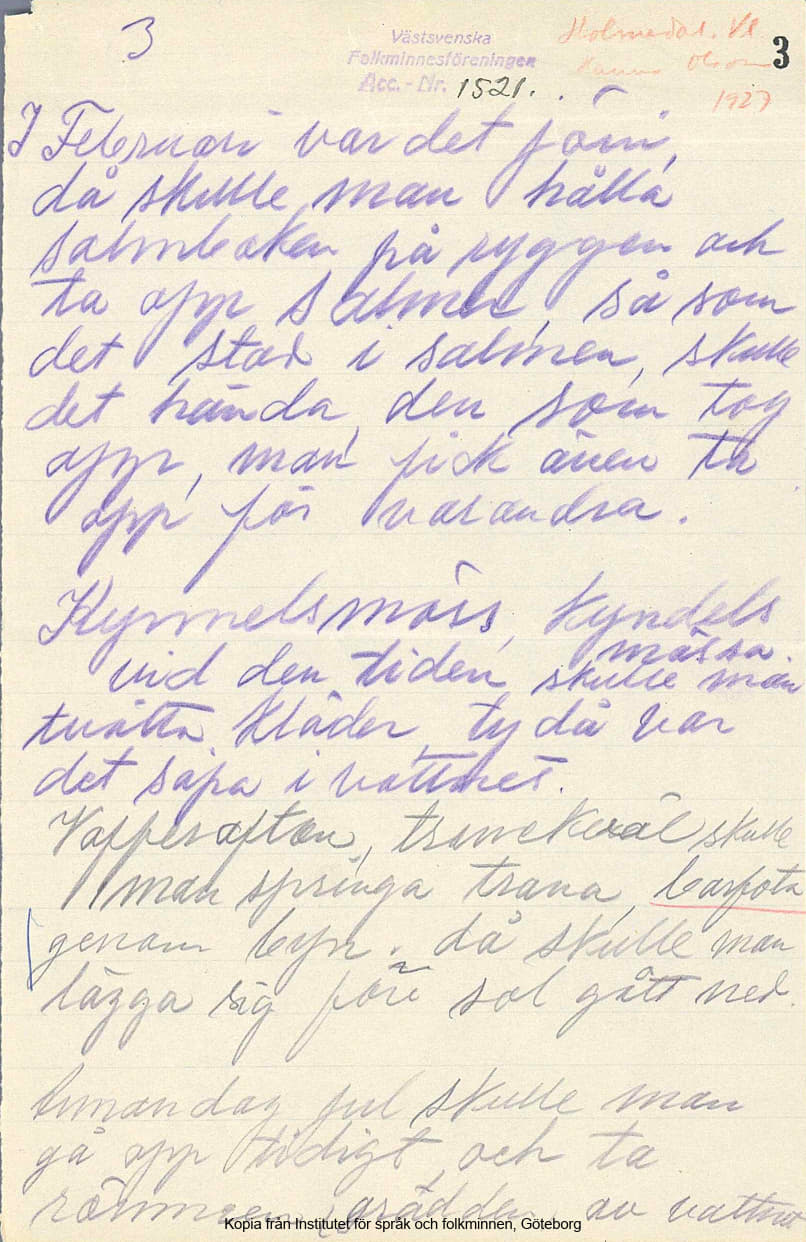 3
Västsvenska
Folkminnesföreningen
Acc. - Nr. 1521.
Holmedal. Vl.
Hanna Olsson
1927
3
I Februari var det
då skulle man hålla
salmboken på ryggen och
ta opp salmen, så som
det stod i salmen, skulle
det hända, den som tog
opp, man fick även ta
opp för varandra.
Kynnelsmäss, kyndels
mässa.
vid den tiden skulle man
tvätta kläder, ty då var
det såpa i vattnet.
afton, skulle
man springa trana, barfota
genom byn. då skulle man
lägga sig före sol gått ned.
Annandag jul skulle man
gå opp tidigt, och ta
römmen, grädden, av vattnet
Kopia från Institutet för språk och folkminnen, Göteborg